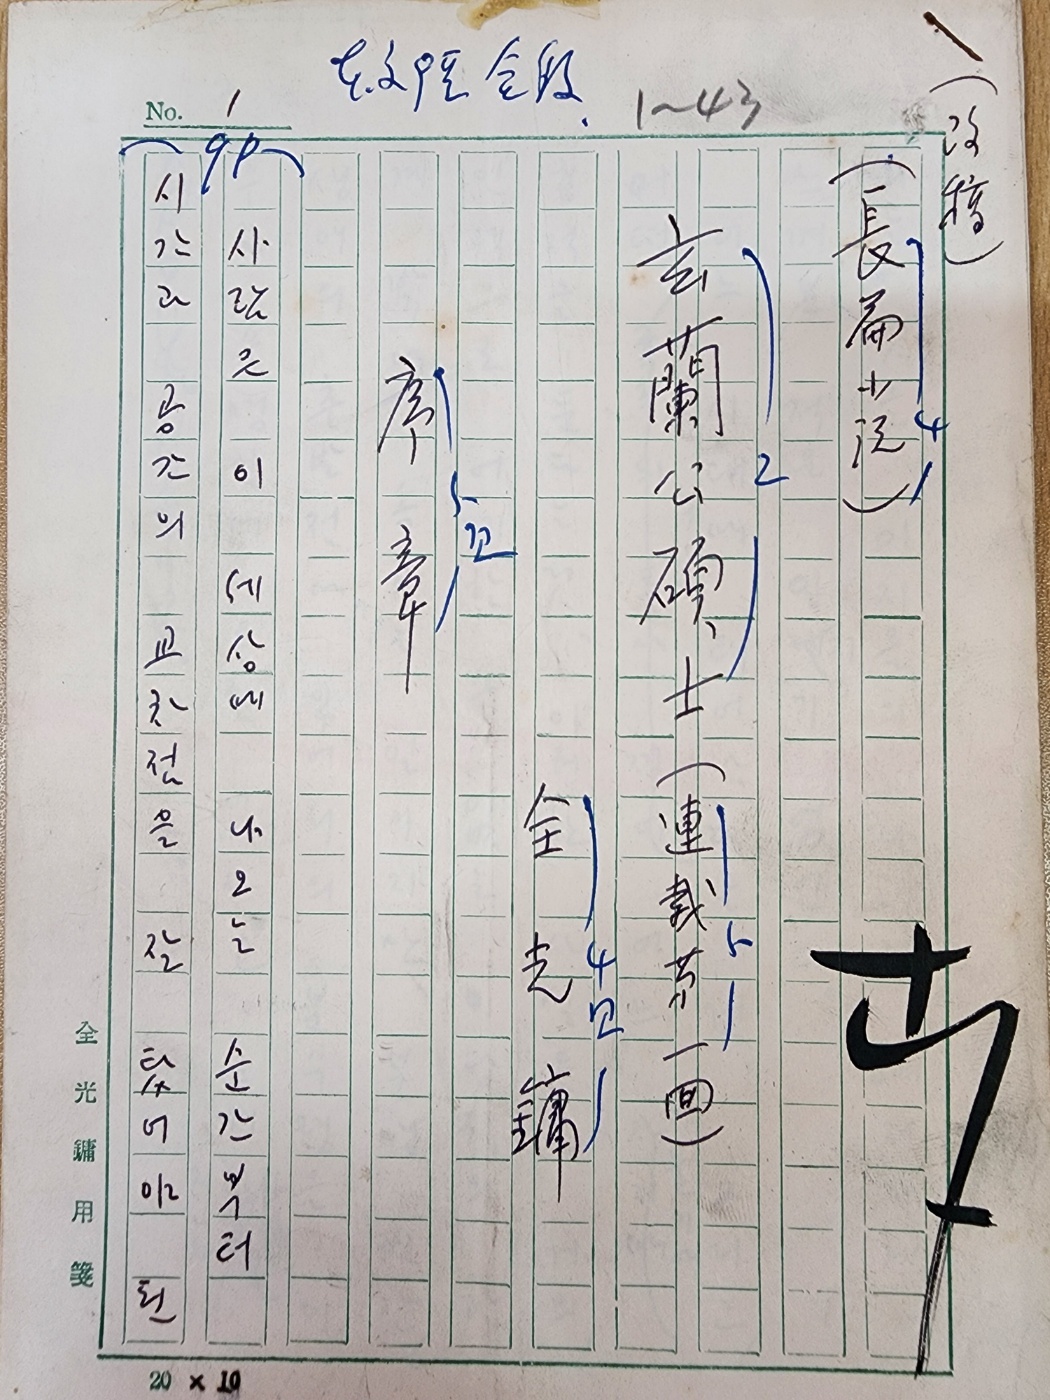 No. 1
1~43
(改稿)
(長篇小説)
4
玄蘭公碩士(連載第一回)
2
5
全光鏞
4고
序章
5고
9P
사람은 이 세상에 나오는 순간부터
시간과 공간의 교차점을 잘 탔어야 된
全光鏞用箋
20 × 10